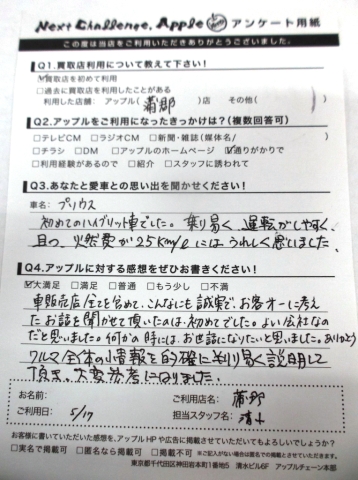 Next Challenge, Apple アンケート用紙
この度は当店をご利用いただきありがとうございました。
Q1.買取店利用について教えて下さい!
☑買取店を初めて利用
□過去に買取店を利用したことがある
利用した店舗: アップル(蒲郡)店 その他( )
Q2.アップルをご利用になったきっかけは?(複数回答可)
□テレビCM □ラジオCM □新聞・雑誌(媒体名/ )
□チラシ □DM □アップルのホームページ ☑通りがかりで
□利用経験があるので □紹介 □スタッフに誘われて
Q3.あなたと愛車との思い出を聞かせください!
車名: プリウス
初めてのハイブリット車でした。乗り易く、運転がしやすく、
且つ、燃費が25km/ℓにはうれしく感じました。
Q4.アップルに対する感想をぜひお書きください!
☑大満足 □満足 □普通 □もう少し □不満
車販売店全てを含めて、こんなにも誠実で、お客オーに考え
たお話を聞かせて頂いたのは、初めてでした。よい会社なの
だと思いました。何かの時には、お世話になりたいと思いました。ありがとう
クルマ全体の小情報を的確に判り易く説明して
頂き、大変参考になりました。
お名前: ご利用店名: 蒲郡
ご利用日: 5/17 担当スタッフ名: 清水
お客様に書いていただいた感想を、アップルHPや広告に掲載させていただいてもよろしいでしょうか?
□実名で掲載可 □匿名なら掲載可 □掲載不可 ※ご記入がない場合は匿名での掲載とさせていただきます。
東京都千代田区神田岩本町1番地5 清水ビル6F アップルチェーン本部